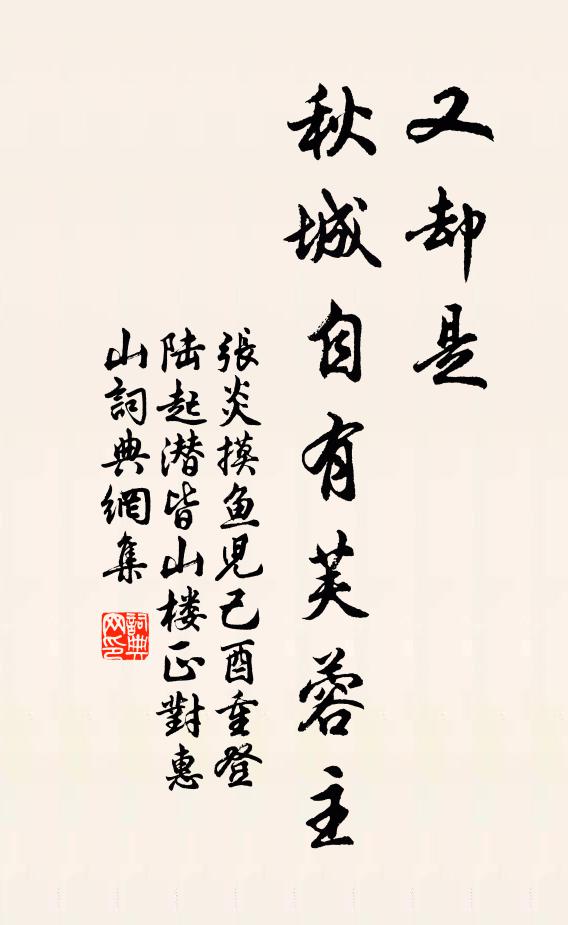 又却是
秋城自有芙蓉主
張炎摸鱼児己酉重登
陆起潜皆山楼正對惠
山詞典網集
詞典
网印